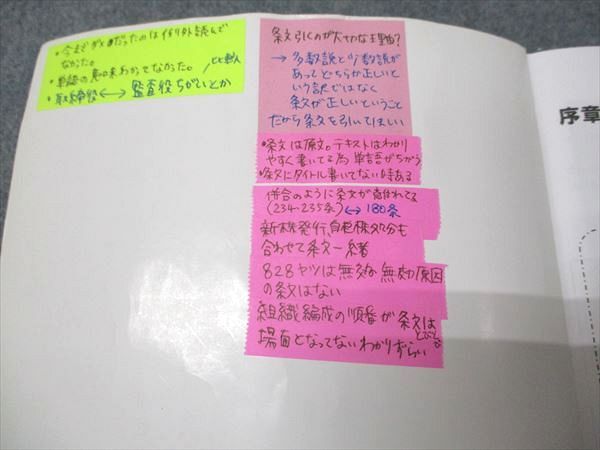 ・今までダメだったのは借り外読んで
なかった。
・単語の意味わかってなかった。
・取締役⟷監査役ちがいとか
比較
条文引くのが大切な理由?
→多数説と少数説が
あってどちらが正しいと
いう訳ではなく
条文が正しいということ
だから条文を引いてほしい
・条文は原文。テキストはわかり
やすく書いてる為 単語がちがう
・条文にタイトル書いてない時ある
併合のように条文が離れてる
(234~235条)↔180条
新株発行、自己株処分も
合わせて条文一緒
828ヤツは無効 無効原因
の条文はない
組織編成の順番が条文は
とびとび
場面となってないわかりずらい
序章